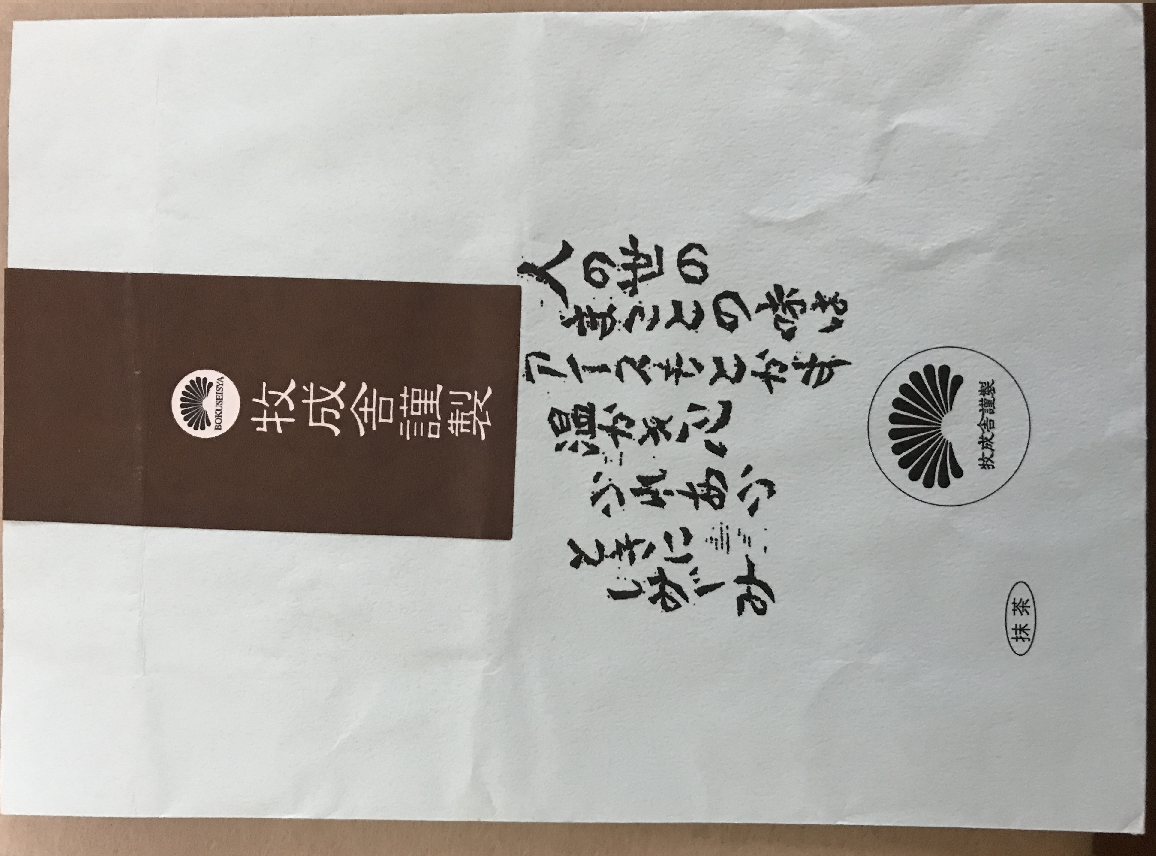 BOKUSEISYA
牧成舎謹製
人の世の
まことの味は
アイスもとかす
温かな心
ふれあふ
ときに
しみじみ
牧成舎謹製
抹茶